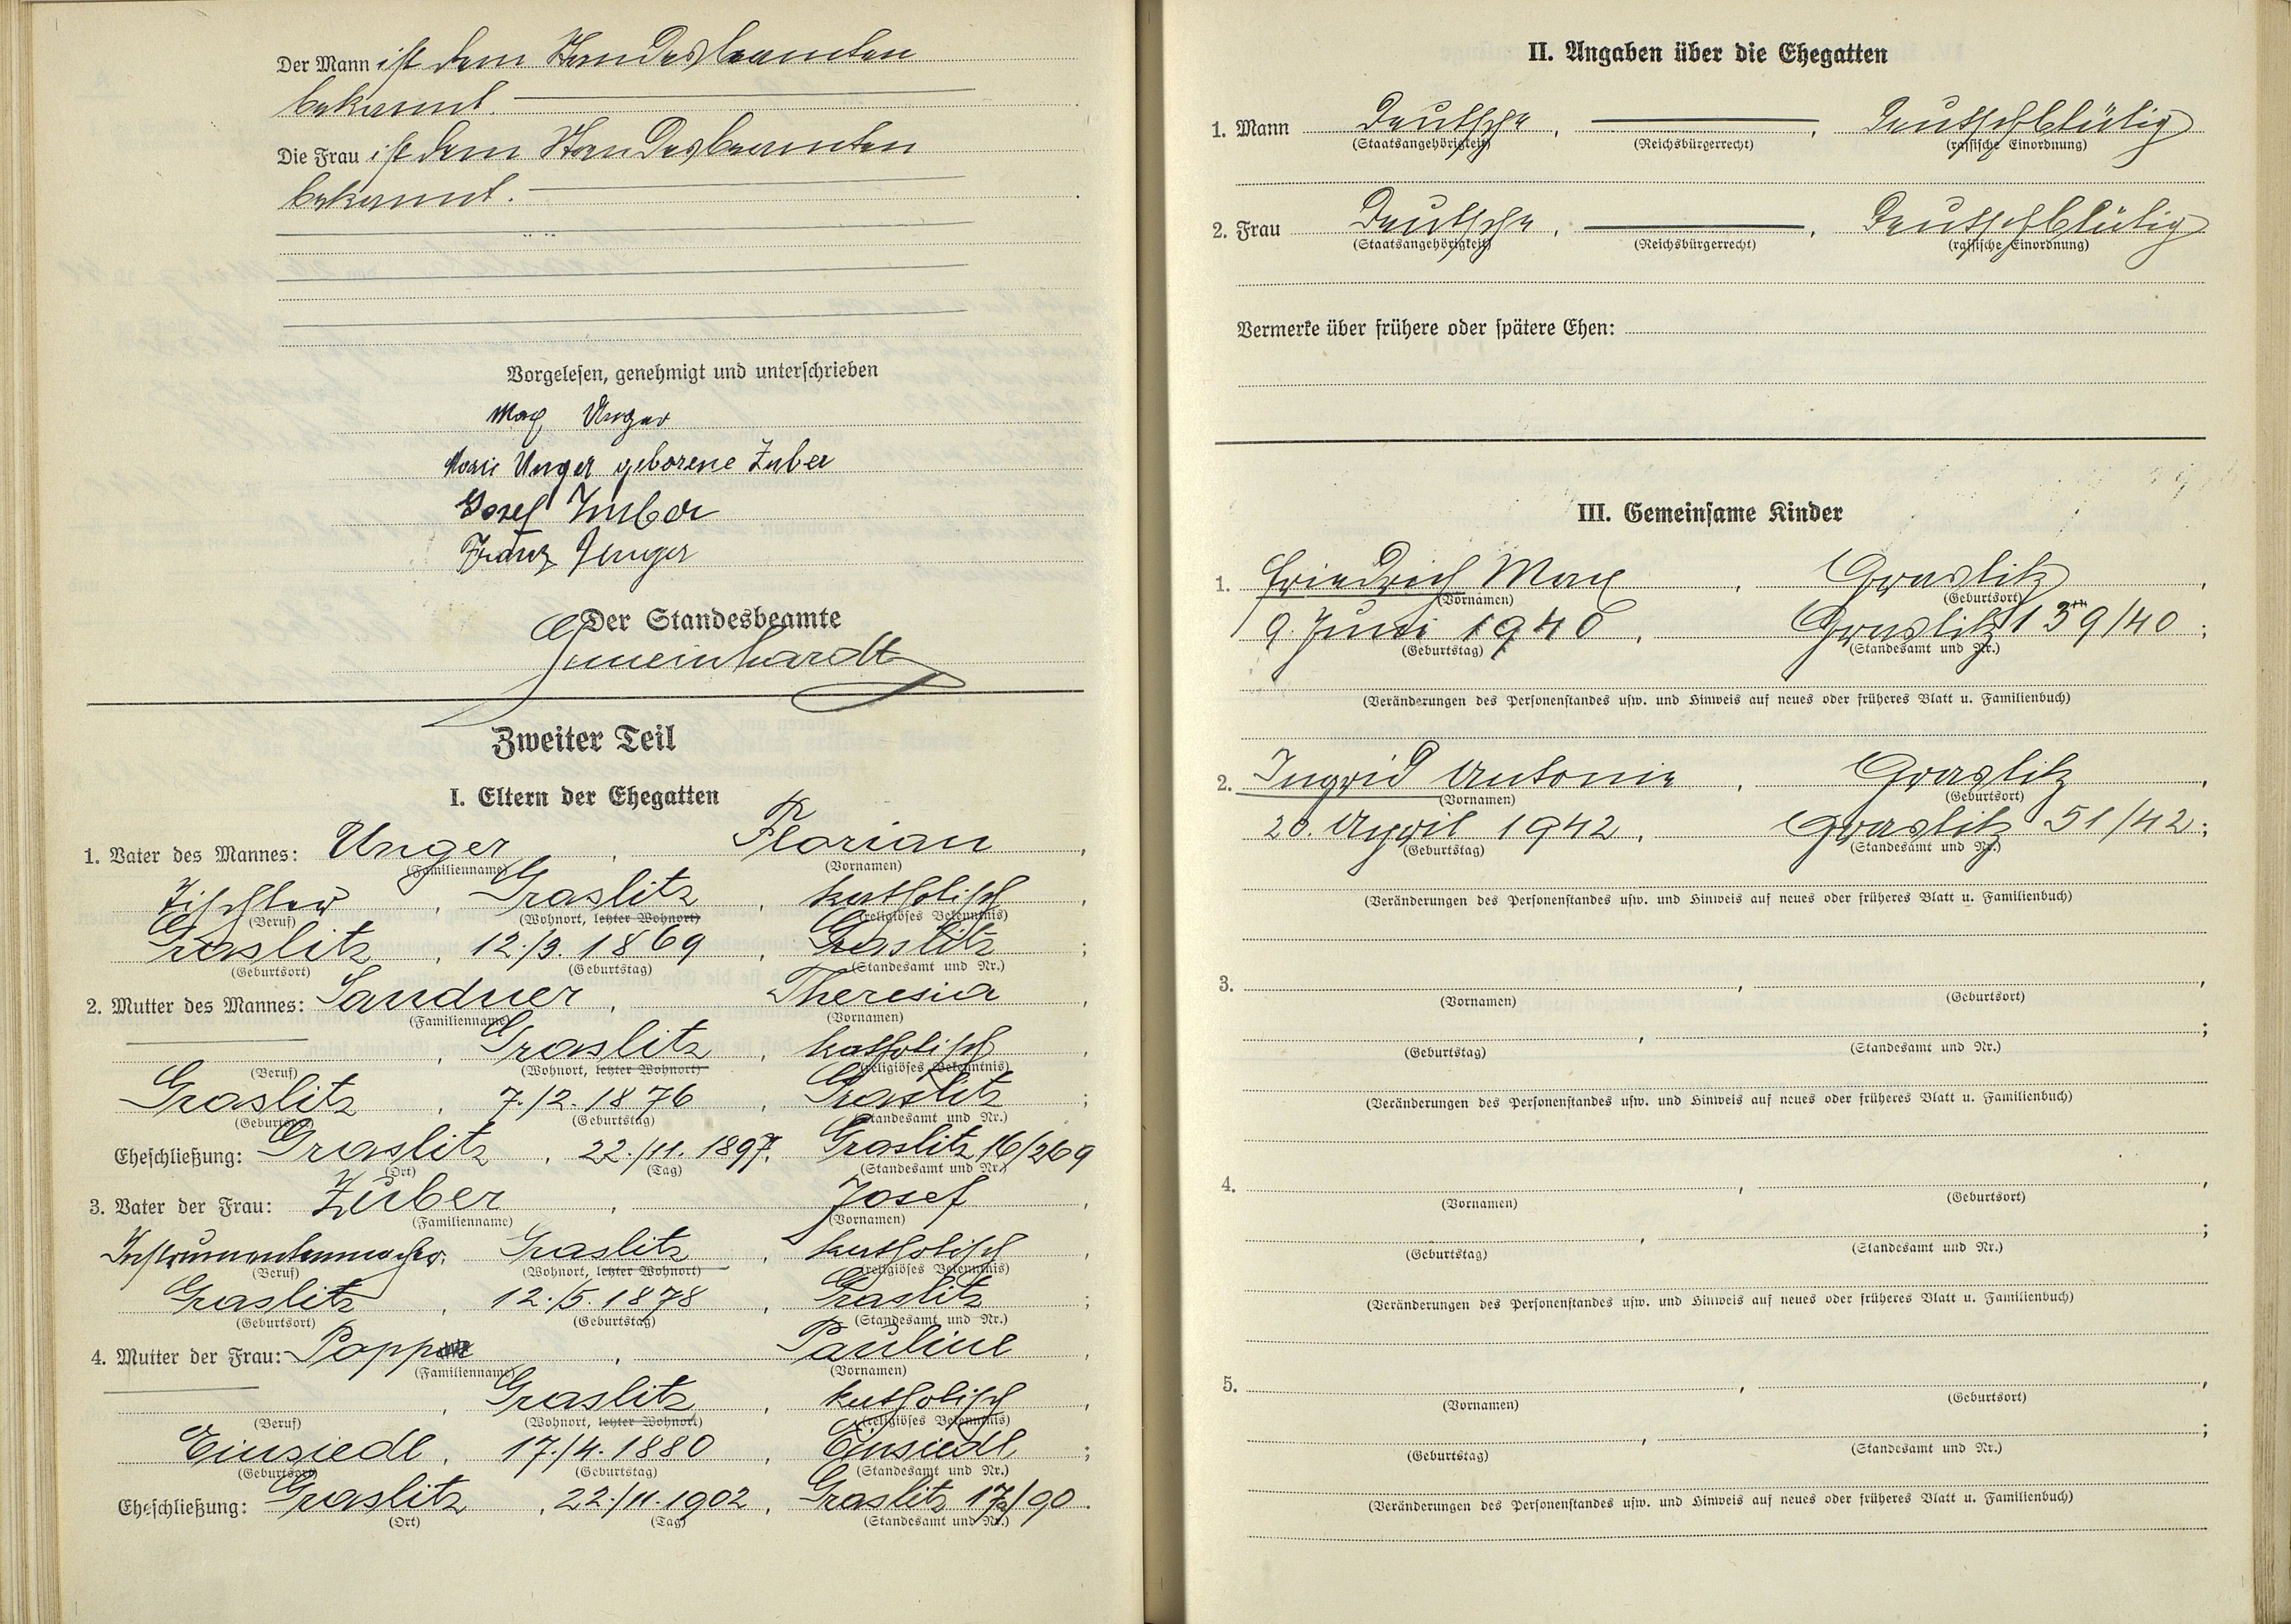 Der Mann ist dem Standesbeamten
bekannt.
Die Frau ist dem Standesbeamten
bekannt.
Vorgelesen, genehmigt und unterschrieben
Max Unger
Marie Unger geborene Zuber
Josef Zuber
Franz Unger
Der Standesbeamte
Gmeinhardt
Zweiter Teil
I. Eltern der Ehegatten
1. Vater des Mannes: Unger, Florian,
(Familienname) (Vornamen)
Tischler, Graslitz, katholisch,
(Beruf) (Wohnort, letzter Wohnort) (religiöses Bekenntnis)
Graslitz, 12./3. 1869, Graslitz;
(Geburtsort) (Geburtstag) (Standesamt und Nr.)
2. Mutter des Mannes: Sandner, Theresia,
(Familienname) (Vornamen)
, Graslitz, katholisch,
(Beruf) (Wohnort, letzter Wohnort) (religiöses Bekenntnis)
Graslitz, 7./2. 1876, Graslitz;
(Geburtsort) (Geburtstag) (Standesamt und Nr.)
Eheschließung: Graslitz, 22./11. 1897, Graslitz 16/269
(Ort) (Tag) (Standesamt und Nr.)
3. Vater der Frau: Zuber, Josef,
(Familienname) (Vornamen)
Instrumentenmacher, Graslitz, katholisch,
(Beruf) (Wohnort, letzter Wohnort) (religiöses Bekenntnis)
Graslitz, 12./5. 1878, Graslitz;
(Geburtsort) (Geburtstag) (Standesamt und Nr.)
4. Mutter der Frau: Popp, Pauline,
(Familienname) (Vornamen)
, Graslitz, katholisch,
(Beruf) (Wohnort, letzter Wohnort) (religiöses Bekenntnis)
Einsiedl, 17./4. 1880, Einsiedl;
(Geburtsort) (Geburtstag) (Standesamt und Nr.)
Eheschließung: Graslitz, 22./11. 1902, Graslitz 17/90.
(Ort) (Tag) (Standesamt und Nr.)
II. Angaben über die Ehegatten
1. Mann Deutsche, , Deutschblütig
(Staatsangehörigkeit) (Reichsbürgerrecht) (rassische Einordnung)
2. Frau Deutsche, , Deutschblütig
(Staatsangehörigkeit) (Reichsbürgerrecht) (rassische Einordnung)
Vermerke über frühere oder spätere Ehen:
III. Gemeinsame Kinder
1. Friedrich Max, Graslitz,
(Vornamen) (Geburtsort)
9. Juni 1940, Graslitz 139/40;
(Geburtstag) (Standesamt und Nr.)
(Veränderungen des Personenstandes usw. und Hinweis auf neues oder früheres Blatt u. Familienbuch)
2. Ingrid Antonie, Graslitz,
(Vornamen) (Geburtsort)
20. April 1942, Graslitz 51/42;
(Geburtstag) (Standesamt und Nr.)
(Veränderungen des Personenstandes usw. und Hinweis auf neues oder früheres Blatt u. Familienbuch)
3. , ,
(Vornamen) (Geburtsort)
, ;
(Geburtstag) (Standesamt und Nr.)
(Veränderungen des Personenstandes usw. und Hinweis auf neues oder früheres Blatt u. Familienbuch)
4. , ,
(Vornamen) (Geburtsort)
, ;
(Geburtstag) (Standesamt und Nr.)
(Veränderungen des Personenstandes usw. und Hinweis auf neues oder früheres Blatt u. Familienbuch)
5. , ,
(Vornamen) (Geburtsort)
, ;
(Geburtstag) (Standesamt und Nr.)
(Veränderungen des Personenstandes usw. und Hinweis auf neues oder früheres Blatt u. Familienbuch)